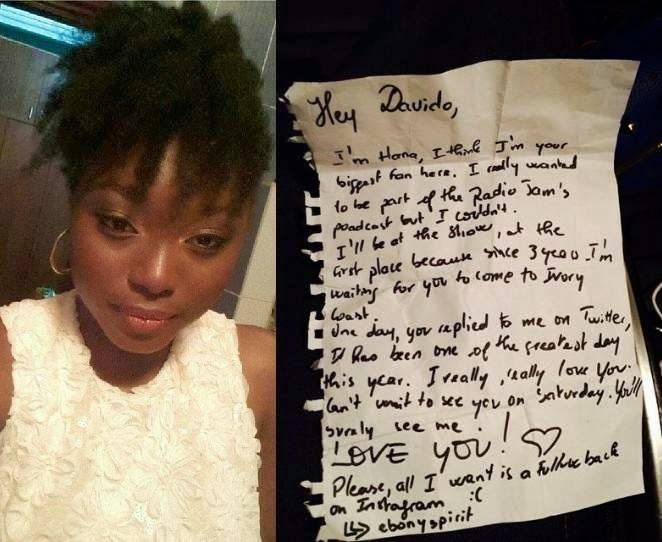 Hey Davido,
I'm Hona, I think I'm your
biggest fan here. I really wanted
to be part of the Radio Jam's
poadcast but I couldn't.
I'll be at the show, at the
first place because since 3 years I'm
waiting for you to come to Ivory
Coast.
One day, you replied to me on Twitter,
It has been one of the greatest day
this year. I really, really love You.
Can't wait to see you on Saturday. You'll
surely see me.
LOVE YOU! ♡
Please, all I want is a follow back
on Instagram :(
↳ ebonyspirit